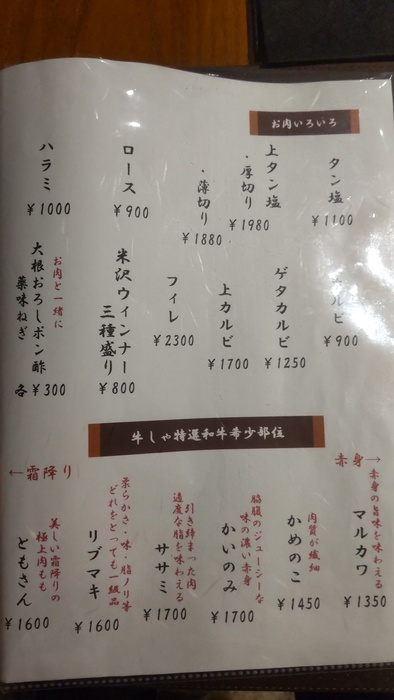 お肉いろいろ
タン塩
¥1100
上タン塩
・厚切り
¥1980
・薄切り
¥1880
ロース
¥900
ハラミ
¥1000
カルビ
¥900
ゲタカルビ
¥1250
上カルビ
¥1700
フィレ
¥2300
米沢ウィンナー
三種盛り
¥800
お肉と一緒に
大根おろしポン酢
薬味ねぎ
各¥300
牛しゃ特選和牛希少部位
赤身→
←霜降り
赤身の旨味を味わえる
マルカワ
¥1350
肉質が繊細
かめのこ
¥1450
脇腹のジューシーな
味の濃い赤身
かいのみ
¥1700
引き締まった肉
適度な脂を味わえる
ササミ
¥1700
柔らかさ・味・脂ノリ等
どれをとっても一級品
リブマキ
¥1600
美しい霜降りの
極上肉もも
ともさん
¥1600